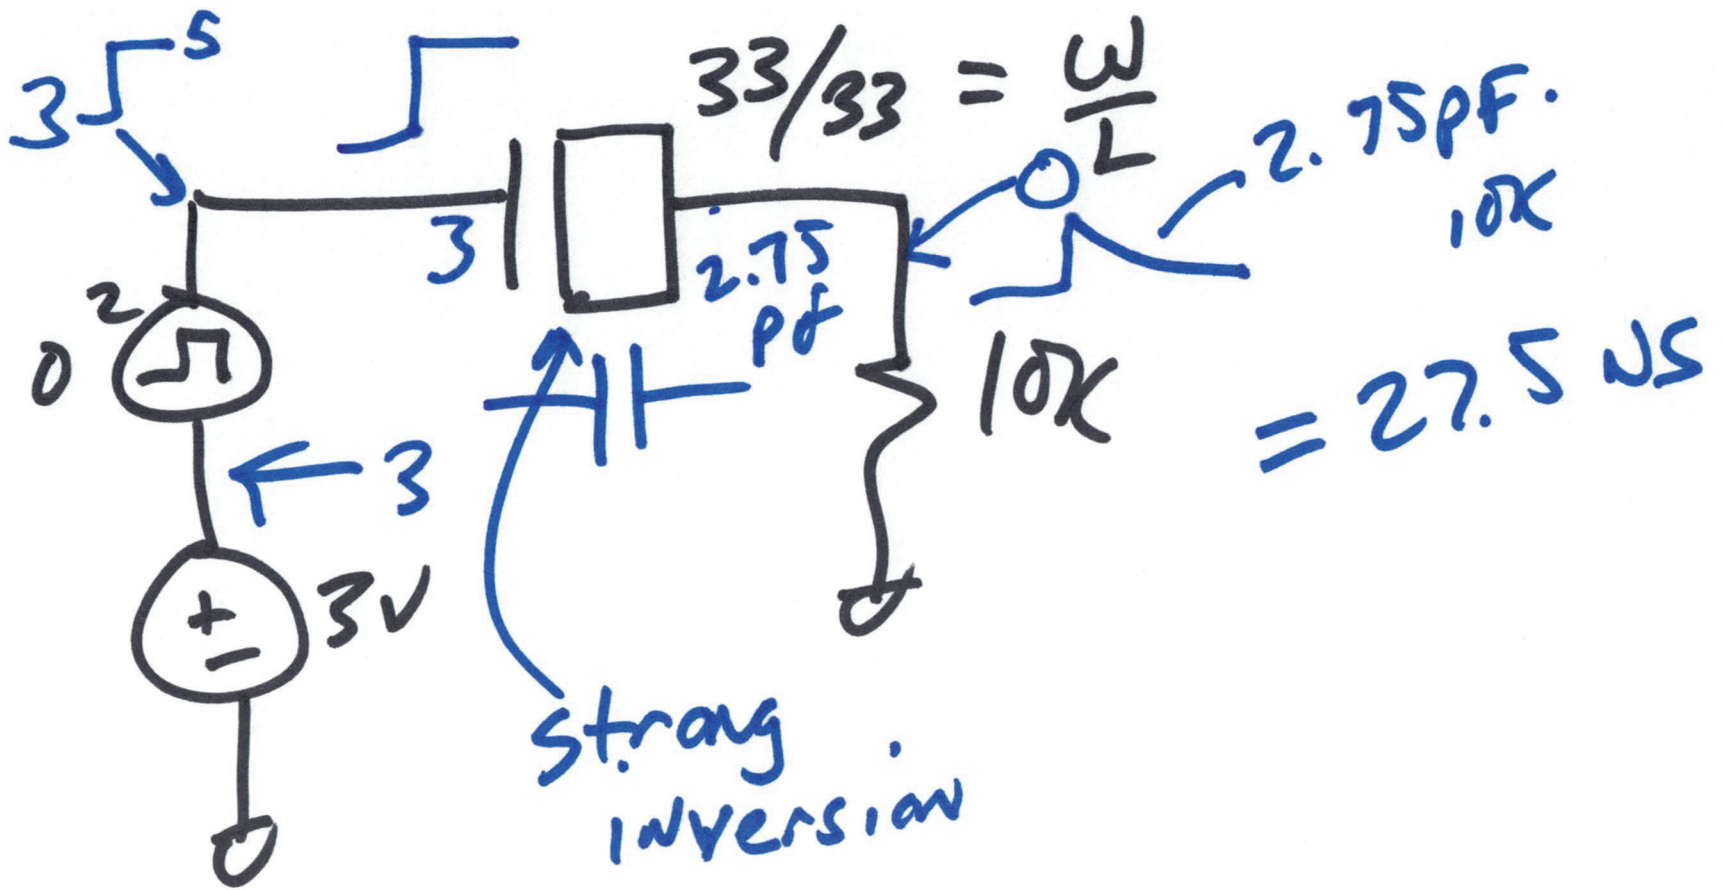 5
3
33/33 = W/L
2.75pF.
10K
3
2.75
pf
2
0
10K
= 27.5 NS
3
+
-
3V
strong
inversion